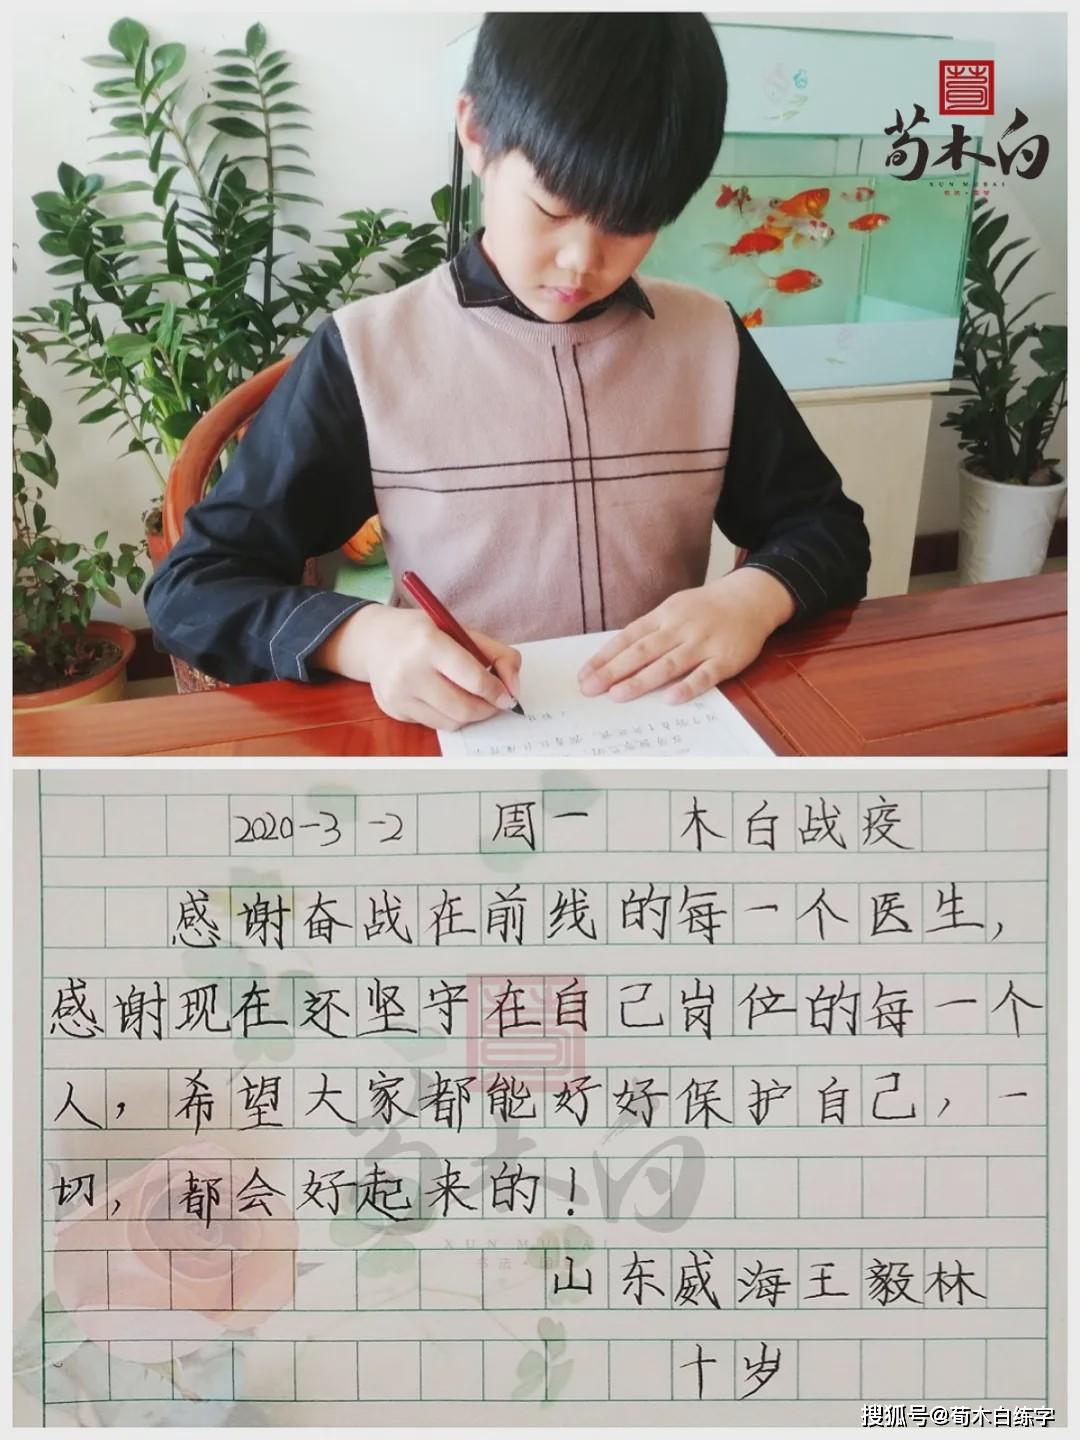 荀木白
XUN MUBAI
2020-3-2 周一 木白战疫
感谢奋战在前线的每一个医生,
感谢现在还坚守在自己岗位的每一个
人,希望大家都能好好保护自己,一
切,都会好起来的!
荀木白
XUN MUBAI
山东威海王毅林
十岁
搜狐号@荀木白练字